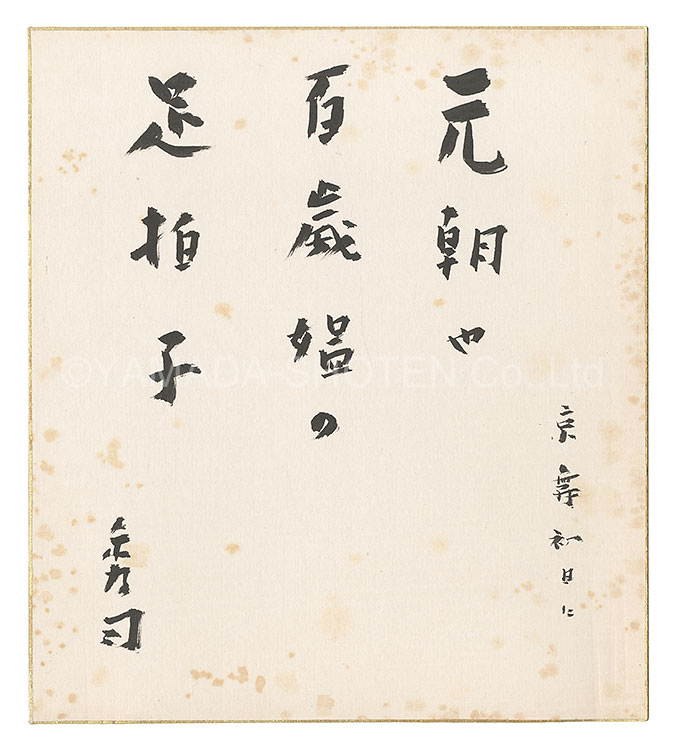 京舞初日に
元朝や
百歳媼の
足拍子
秀司
©YAMADA-SHOTEN Co.,Ltd